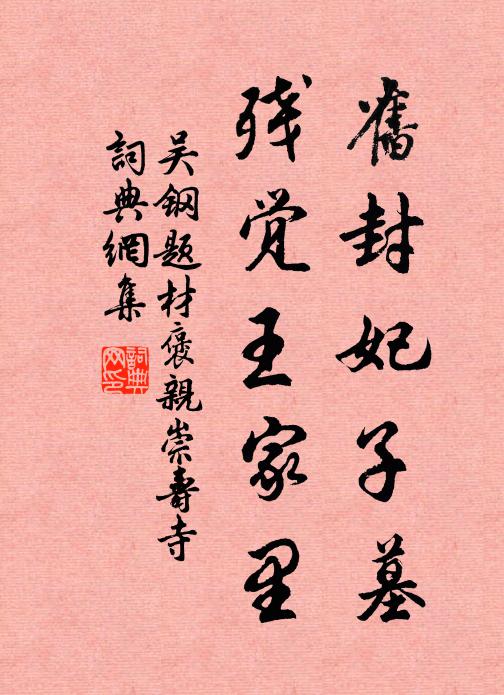 舊封妃子墓
残觉王家里
吴鋼题材褒親崇壽寺
詞典網集
詞典
网印